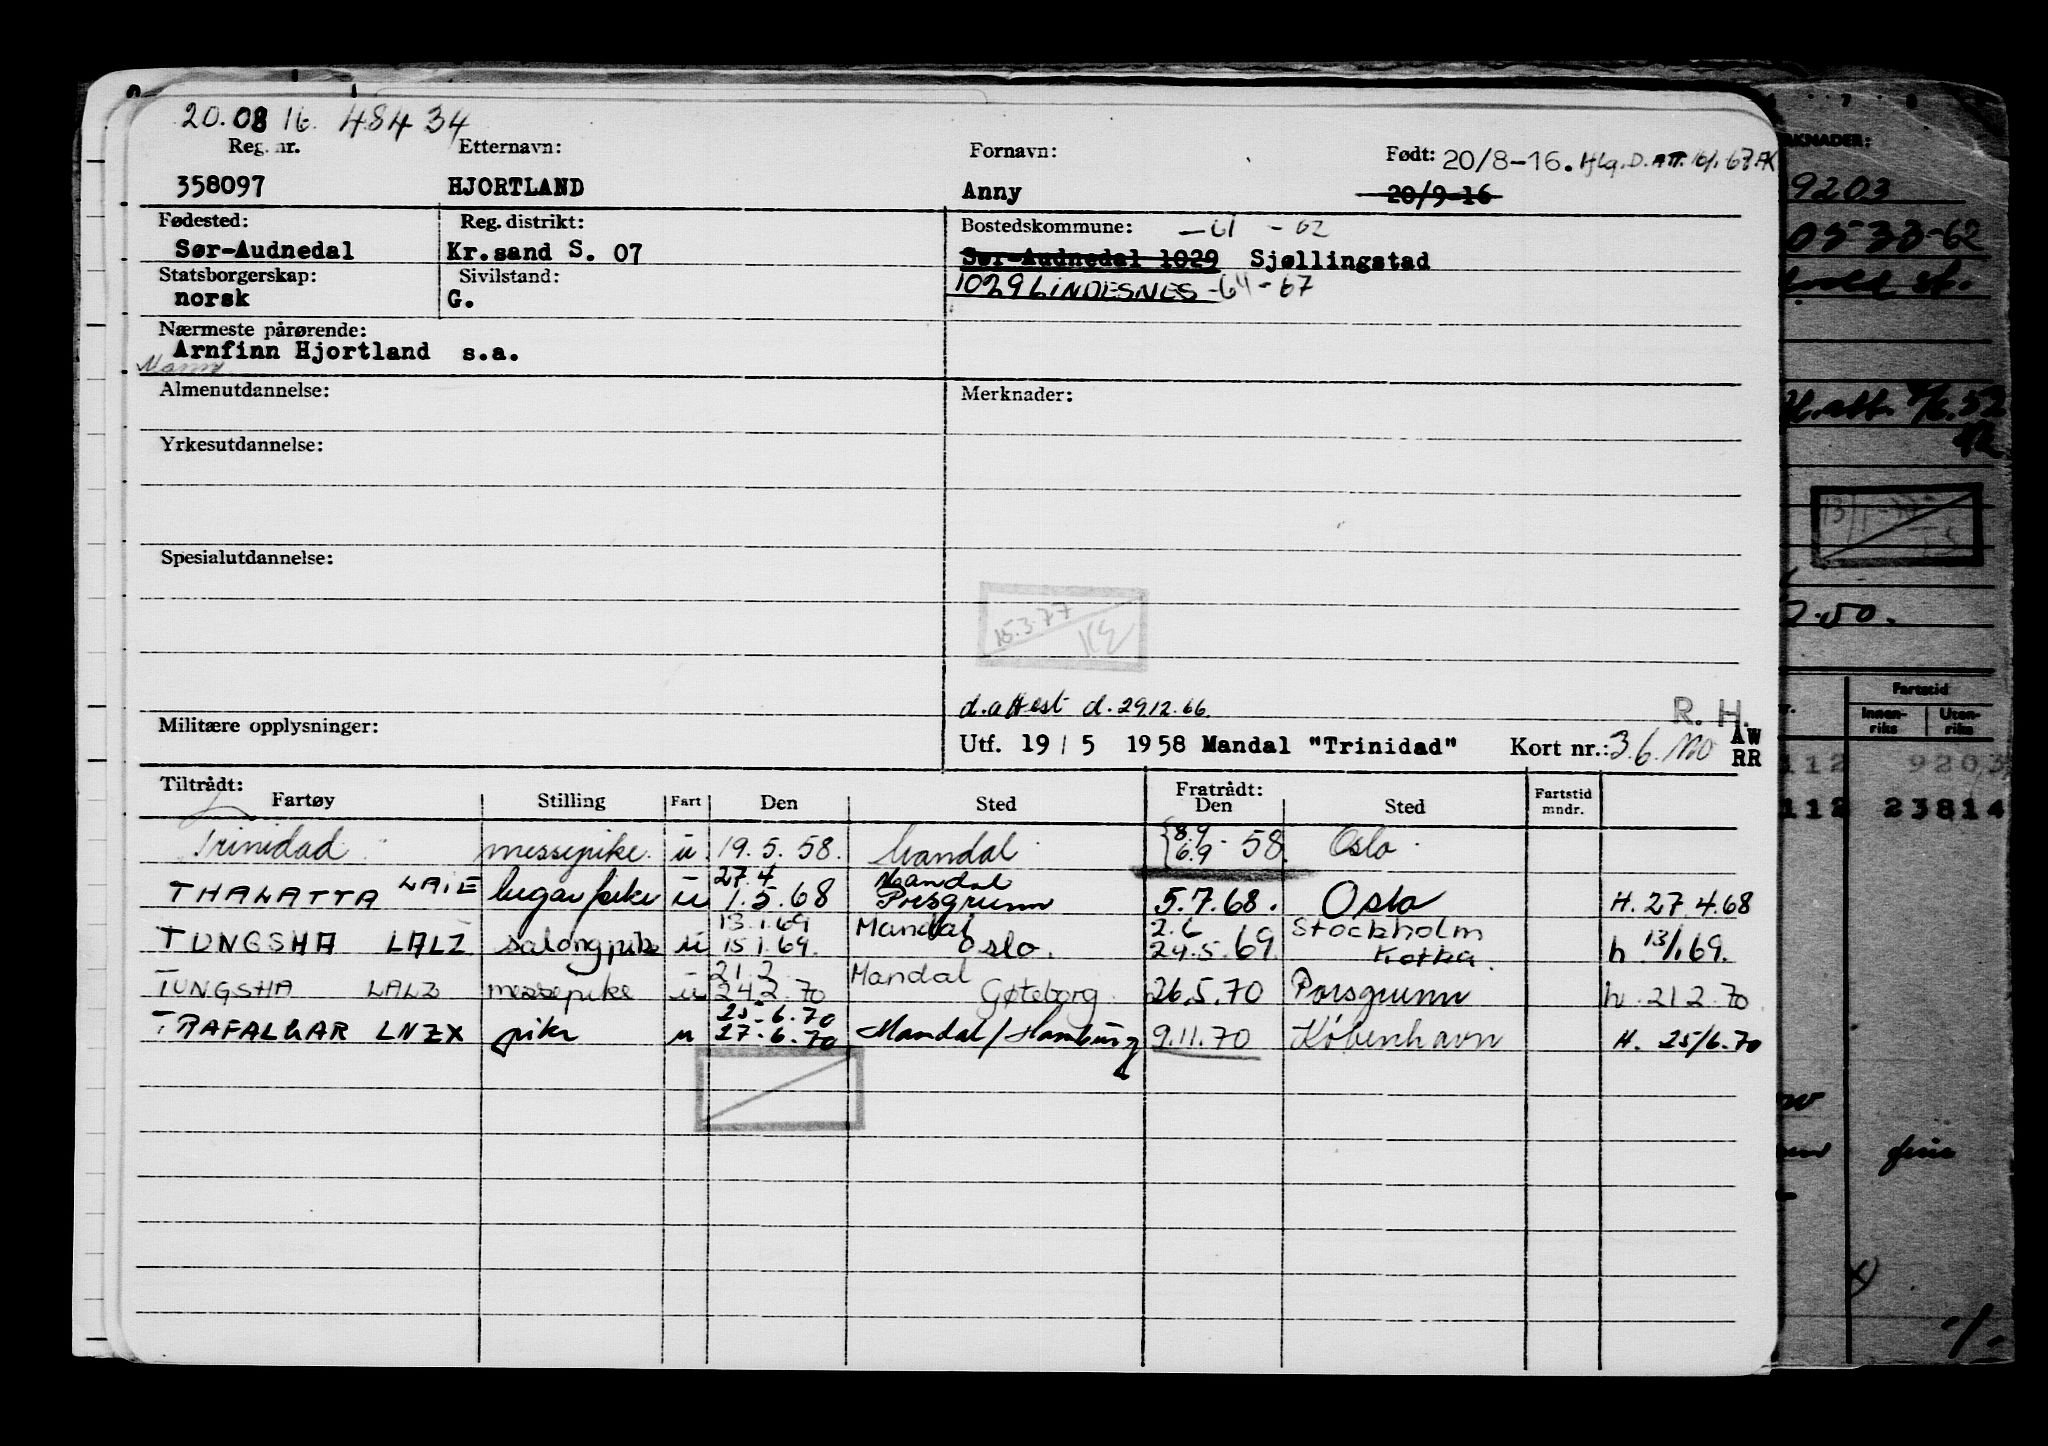 20.08 16. 48434
Reg. nr. Etternavn: Fornavn: Født: 20/8-16.
358097 HJORTLAND Anny 20/9-16
Fødested: Reg. distrikt: Bostedskommune: -61 -62
Sør-Audnedal Kr.sand S. 07 Sør-Audnedal 1029 Sjøllingstad
Statsborgerskap: Sivilstand: 1029 LINDESNES -64-67
norsk G.
Nærmeste pårørende:
Arnfinn Hjortland s.a.
Mann
Almenutdannelse: Merknader:
Yrkesutdannelse:
Spesialutdannelse:
15.3.77
KE
d.attest d. 29.12.66.
R. H.
Militære opplysninger: Utf. 19 / 5 1958 Mandal "Trinidad" Kort nr.: 3.6. ÅW
RR
Tiltrådt: Fratrådt:
Fartøy Stilling Fart Den Sted Den Sted Fartstid mndr.
Trinidad messepike. u. 19.5.58. Mandal 8.9 6.9 - 58. Oslo.
27.4 Mandal
THALATTA LAIE lugarpike u 1.5.68 Porsgrunn 5.7.68. Oslo H. 27.4.68
13.1.69 Mandal 2.6 Stockholm
TUNGSHA LALZ salongpike u 15.1.69. Oslo. 29.5.69. Kotka. h 13/1 69.
21.2 Mandal
TUNGSHA LALZ messepike u 24.2.70 Gøteborg 26.5.70 Porsgrunn h. 21.2.70
25.6.70
TRAFALGAR LNZX pike u 27.6.70 Mandal/Hamburg 9.11.70 København H. 25/6.70
9203
0533-62
2.50.
Fartstid
Innen-riks Uten-riks
112 9203
112 23814